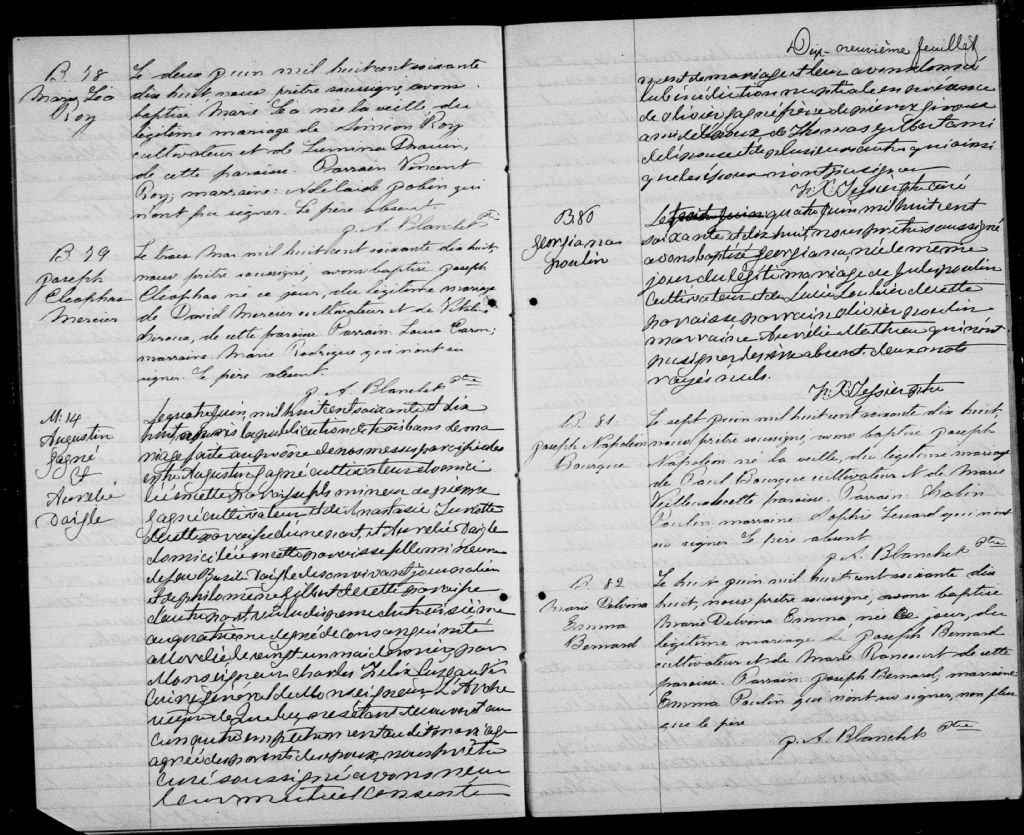 B. 78
Marie Léa
Roy
Le deux juin mil huit cent soixante
dix huit, nous prêtre soussigné, avons
baptisé Marie Léa née la veille du
légitime mariage de Siméon Roy
cultivateur et de Lumina Drouin,
de cette paroisse. Parrain Vincent
Roy; marraine: Adélaide Poulin qui
n'ont pu signer. Le père absent.
J. A. Blanchet ptre
B. 79
Joseph
Cléophas
Mercier
Le trois Mai mil huit cent soixante dix huit,
nous prêtre soussigné, avons baptisé Joseph
Cléophas né ce jour, du légitime mariage
de David Mercier cultivateur et de
de cette paroisse Parrain Louis Caron;
marraine: Marie Rodrigue qui n'ont su
signer. Le père absent.
J. A. Blanchet Ptre
M. 14
Augustin
Gagné
&
Aurélie
Daigle
Le quatre juin, mil huit cent soixante et dix
huit, après la publication de trois bans de ma
riage faite au prône de nos messes paroissiales
entre Augustin Gagné cultivateur domici
lié en cette paroisse fils mineur de Pierre
Gagné cultivateur et de Anastasie
de cette paroisse d'une part, et Aurélie Daigle
domiciliée en cette paroisse fille mineure
de feu Basile Daigle de son vivant journalier
& de Philomène Gilbert de cette paroisse
d'autre part, vu la dispense du troisième
au quatrième degré de consanguinité
accordée le vingt un mai dernier par
Monseigneur Charles Félix Cazeau Vi
caire général de Monseigneur l'Arche
vêque de Québec, ne s'étant découvert au
cun autre empêchement au dit mariage
agréé des parents des époux, nous prêtre
curé soussigné avons reçu
leur mutuel consente
Dix-neuvième feuillet
ment de mariage et leur avons donné
la bénédiction nuptiale en présence
de Olivier Gagné frère de
ami de l'époux de Thomas Gilbert ami
de l'épouse et de plusieurs autres qui ainsi
que les époux n'ont pu signer
F. X. Tessier Ptre curé
B 80
Georgiana
Poulin
Le trois juin quatre juin mil huit cent
soixante et dix huit, nous prêtre soussigné
avons baptisé Georgiana, née le même
jour du légitime mariage de Jules Poulin
cultivateur et de Lucie de cette
paroisse, parrain Olivier Poulin
marraine Aurélie Mathieu qui n'ont
pu signer, le père absent. deux mots
rayés nuls.
F. X. Tessier Ptre
B. 81
Joseph Napoléon
Bourque
Le sept juin mil huit cent soixante dix huit,
nous prêtre soussigné, avons baptisé Joseph
Napoléon né la veille, du légitime mariage
de Paul Bourque cultivateur et de Marie
Veilleux de cette paroisse. Parrain:
Poulin marraine: Sophie qui n'ont
su signer. Le père absent
J. A. Blanchet Ptre
B. 82
Marie Delvina
Emma
Bernard
Le huit juin mil huit cent soixante dix
huit, nous prêtre soussigné, avons baptisé
Marie Delvina Emma, née ce jour, du
légitime mariage de Joseph Bernard
cultivateur et de Marie Rancourt de cette
paroisse. Parrain: Joseph Bernard, marraine
Emma Poulin qui n'ont su signer, non plus
que le père
J. A. Blanchet ptre